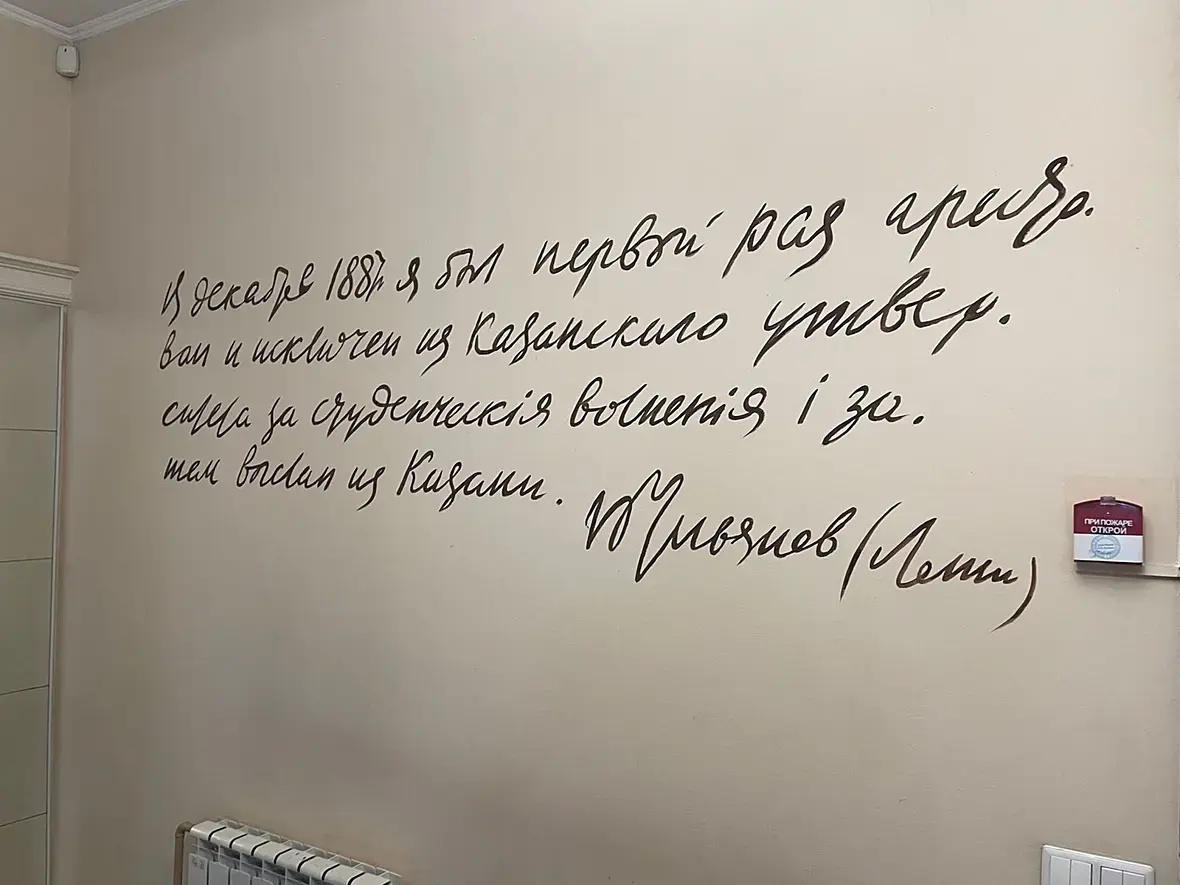 В декабре 1887 г. я был первый раз аресто-
ван и исключен из Казанского универ-
ситета за студенческія волненія і за-
тем выслан из Казани.
В Ульянов (Ленин)
ПРИ ПОЖАРЕ
ОТКРОЙ